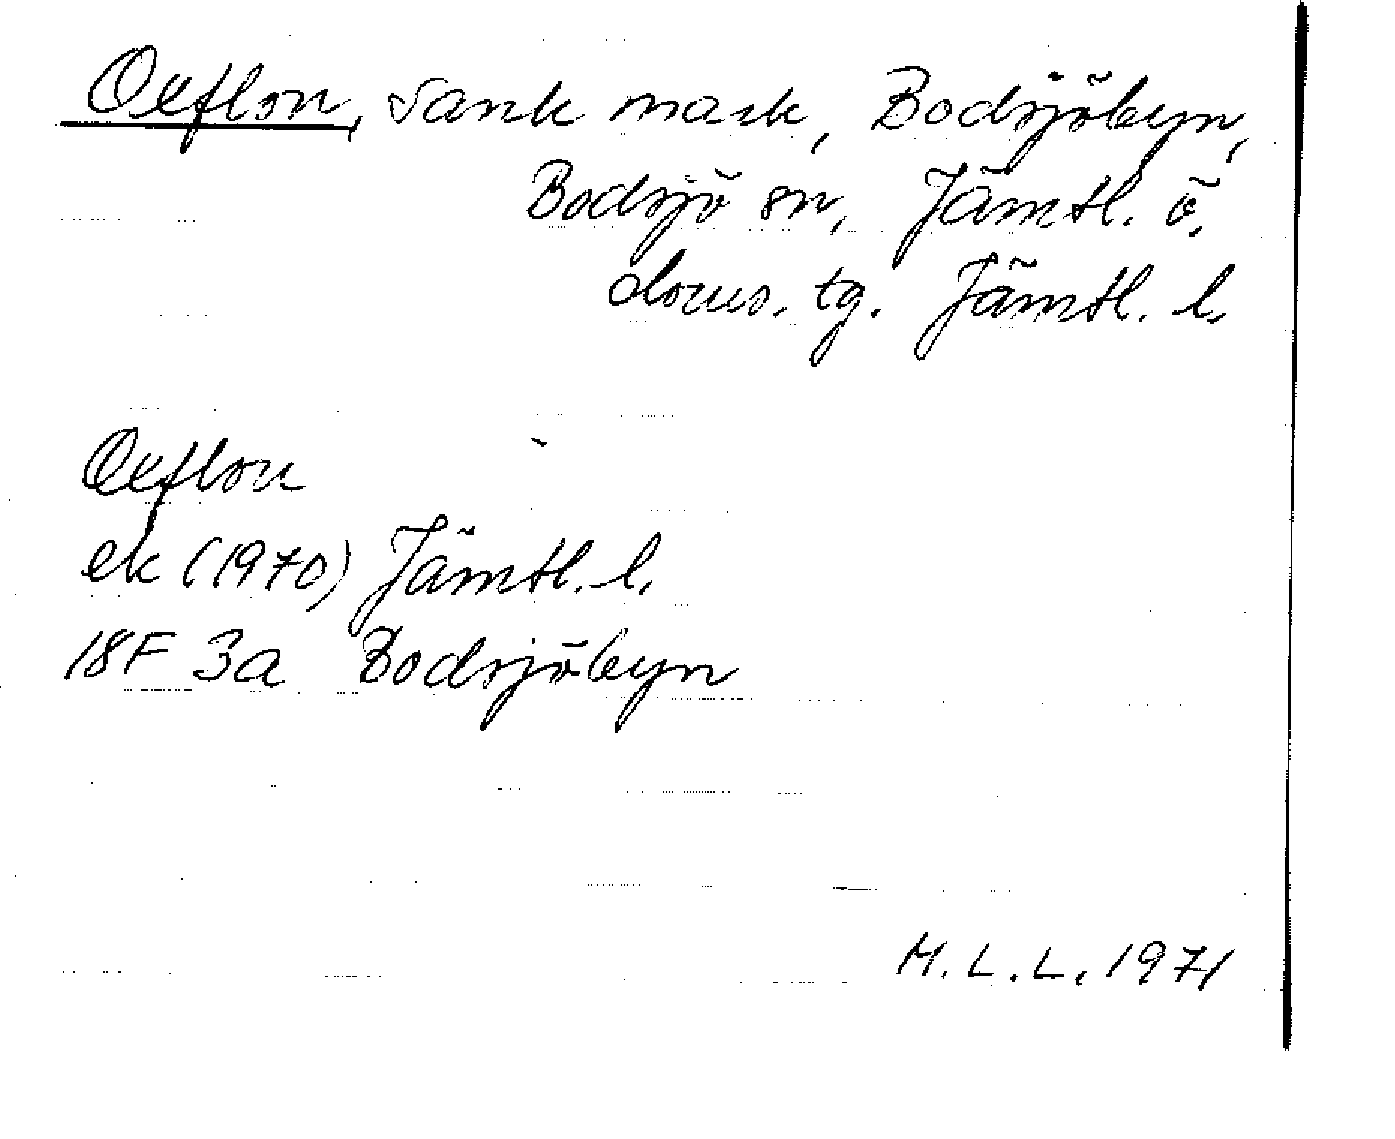 Oxflon, sank mark, Bodsjöbyn,
Bodsjö sn, Jämtl. ö.
doms. tg. Jämtl. l.
Oxflon
ek (1970) Jämtl. l.
18F 3a Bodsjöbyn
M.L.L. 1971